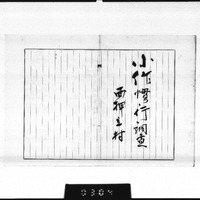 小作慣行調査
西柳之村
0304